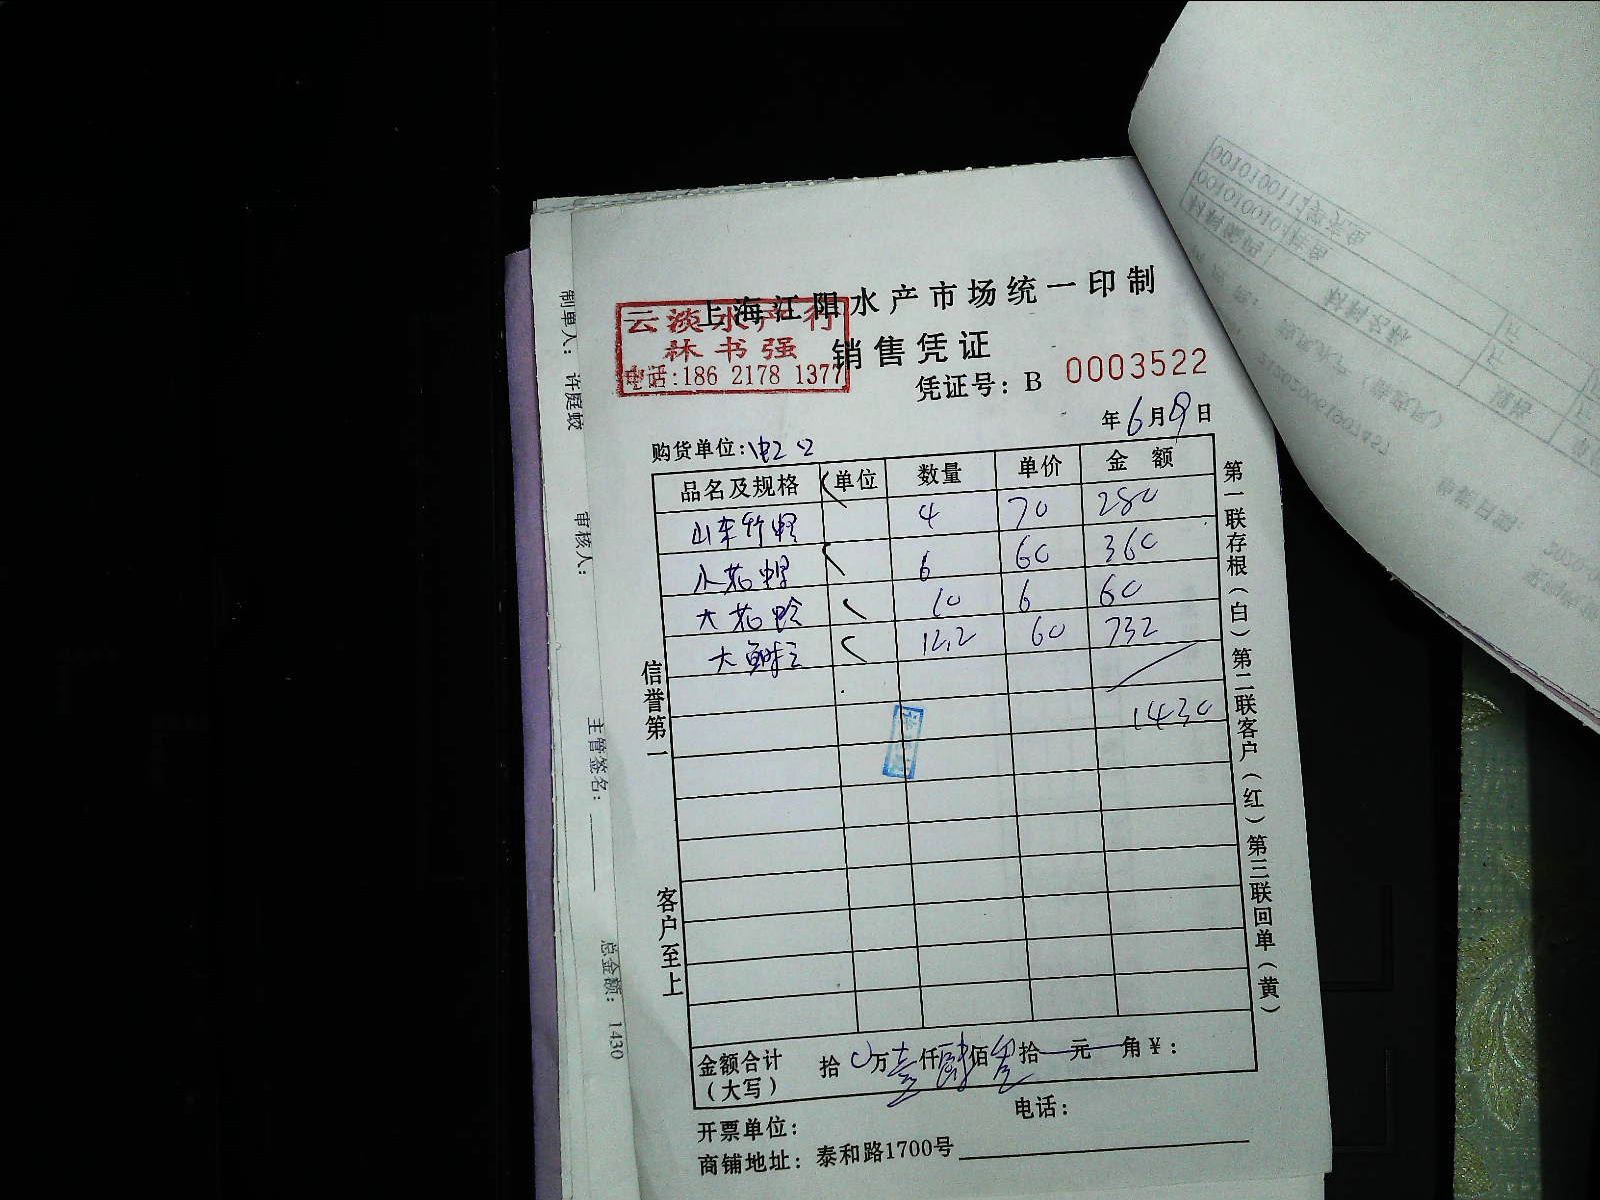 上海江阳水产市场统一印制
云淡水产行
林书强
电话:186 2178 1377
销售凭证
凭证号：B 0003522
年6月9日
购货单位:
品名及规格 单位 数量 单价 金额
山东竹蛏 4 70 280
小花甲 6 60 360
大花蛤 10 6 60
大 12.2 60 732
1430
金额合计（大写） 拾0万壹仟肆佰叁拾一元一角￥：
开票单位： 电话：
商铺地址：泰和路1700号
信誉第一 客户至上
第一联存根（白）第二联客户（红）第三联回单（黄）
制单人： 许庭蛟 审核人： 主管签名： 总金额： 1430